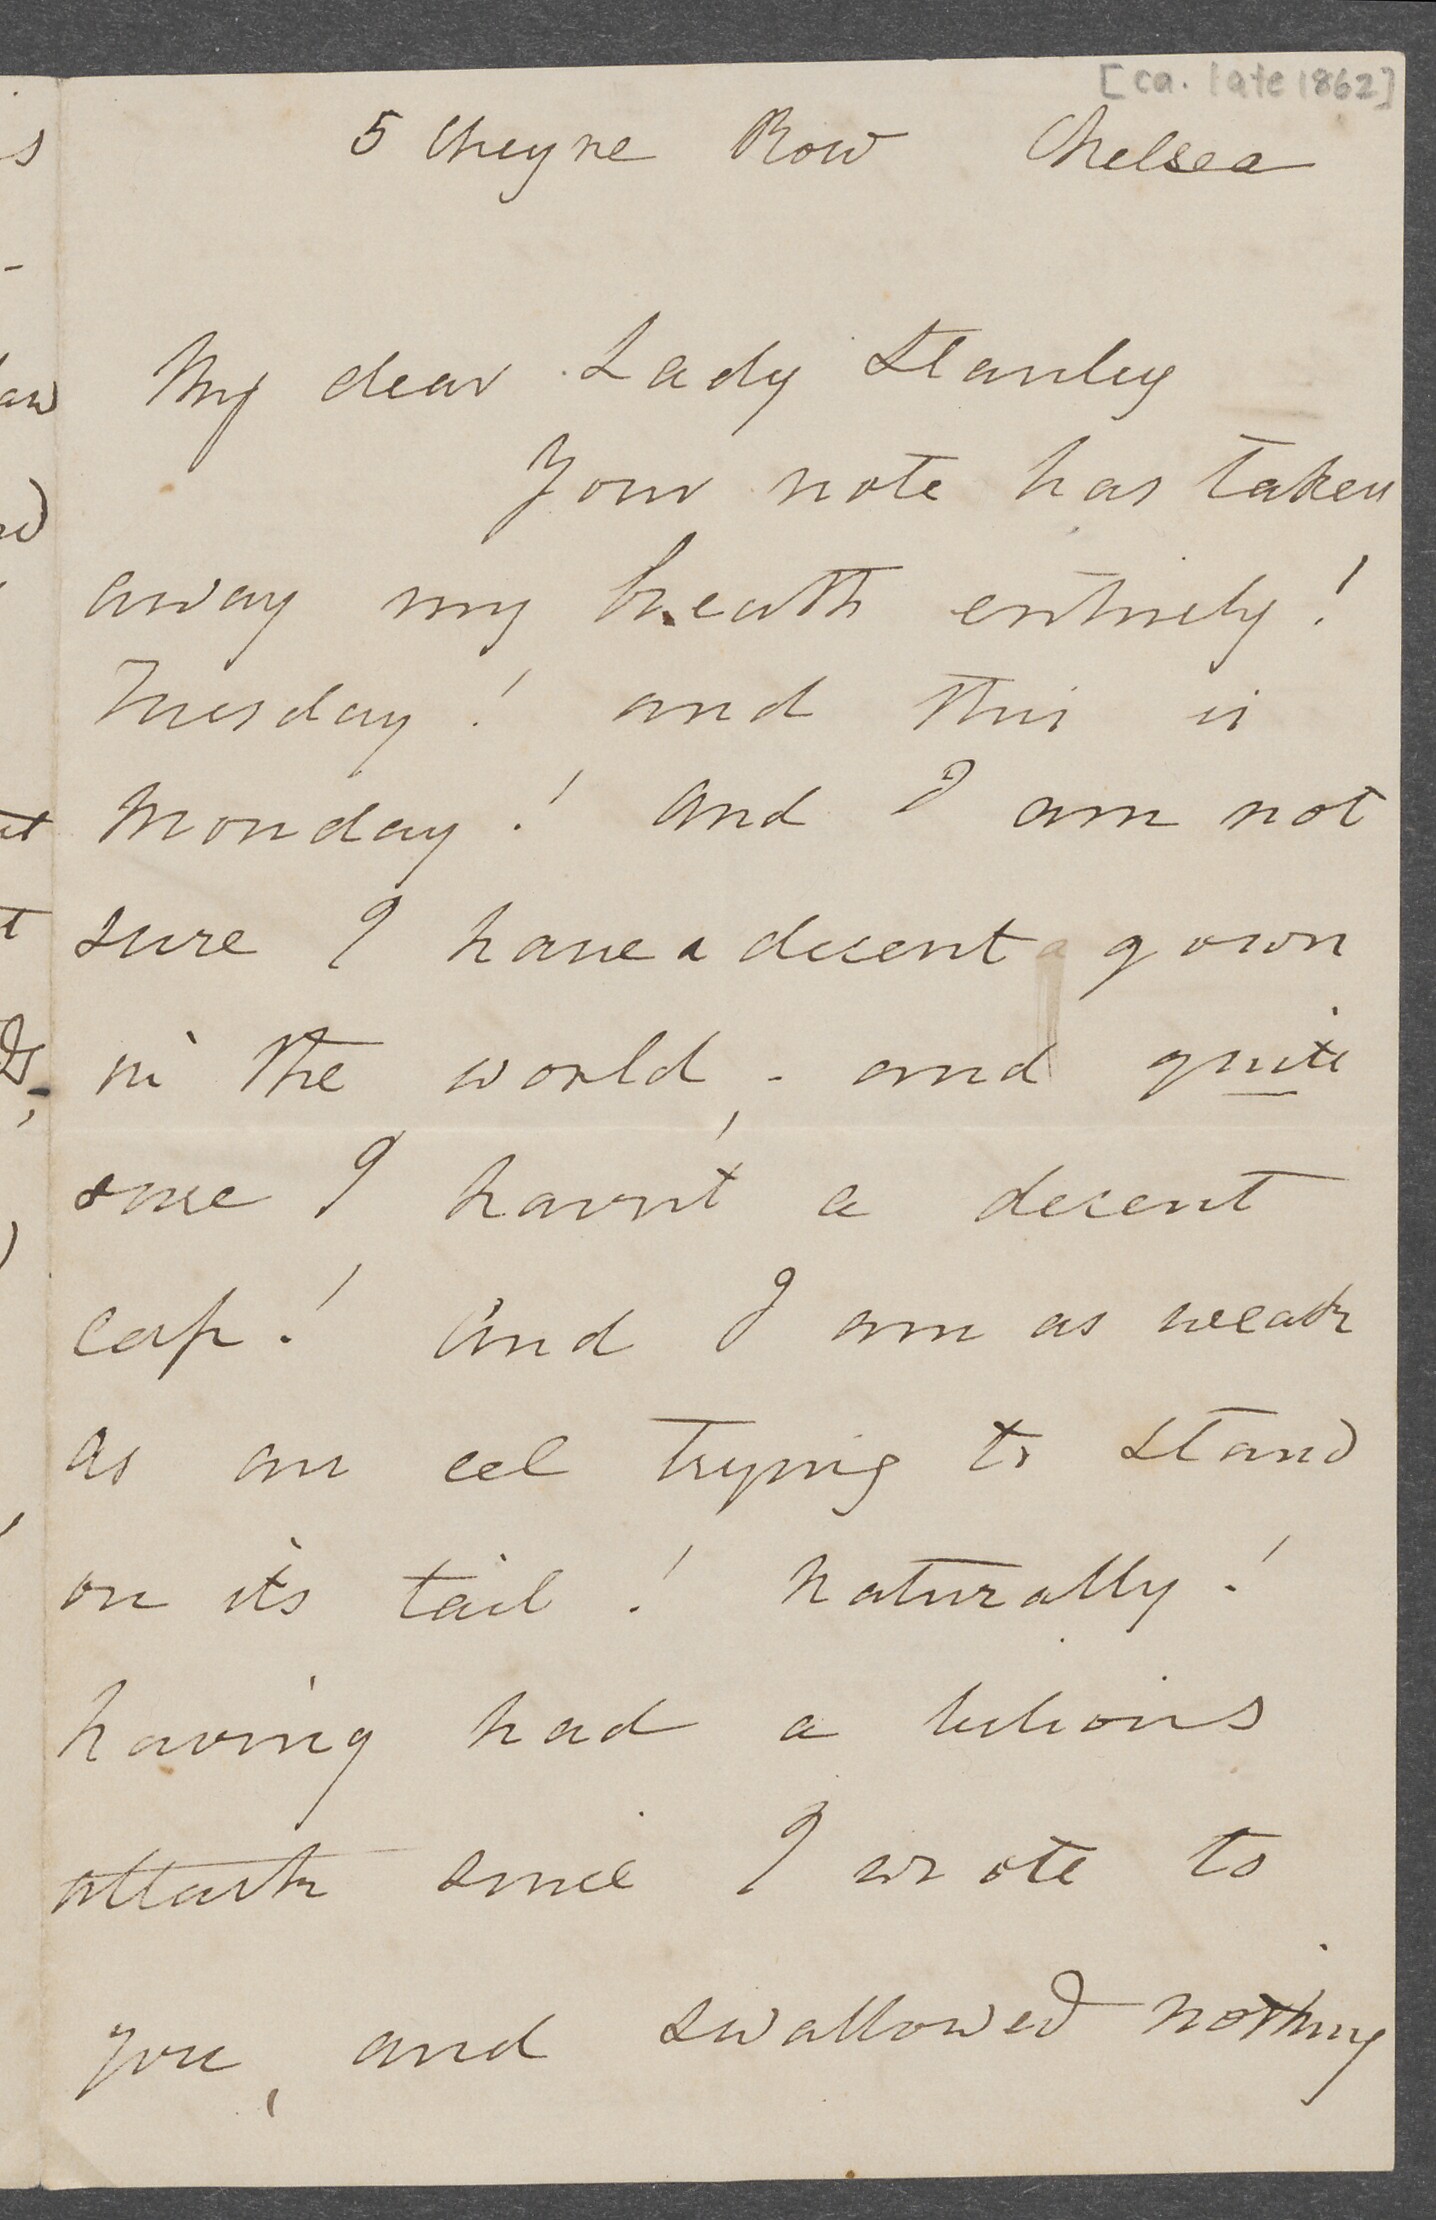 [ca. late 1862]
5 Cheyne Row Chelsea
My dear Lady Stanley
Your note has taken
away my breath entirely!
Tuesday! and this is
Monday! And I am not
sure I have a decent gown
in the world, - and quite
sure I havn't a decent
cap! And I am as weak
as an eel trying to stand
on its tail! Naturally!
having had a bilious
attack since I wrote to
you, and swallowed nothing